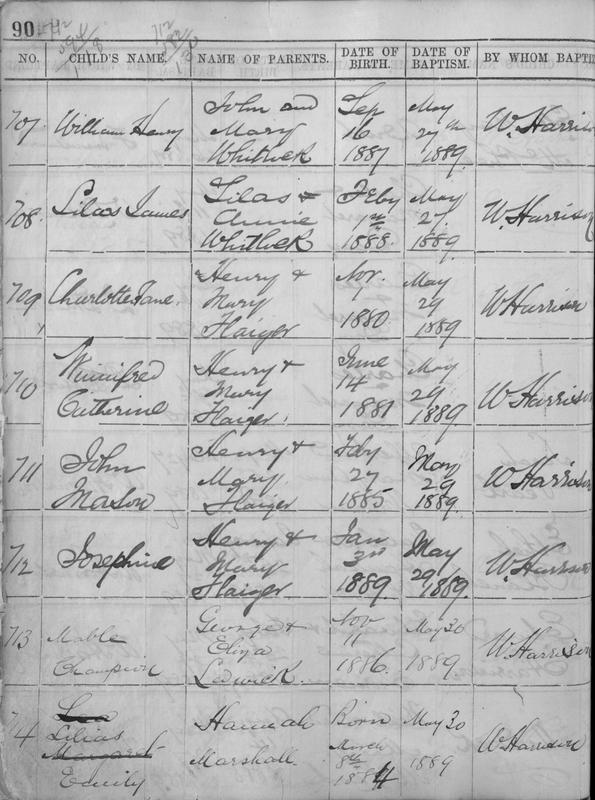 90
NO. CHILD'S NAME. NAME OF PARENTS. DATE OF BIRTH. DATE OF BAPTISM. BY WHOM BAPTI
707 William Henry John and Mary Whitlock Sep 16 1887 May 27th 1889. W. Harrison
708. Silas James Silas & Annie Whitlock Feby 1st 1888. May 27 1889. W. Harrison
709 Charlotte Jane. Henry & Mary Haiger Nov. 1880 May 29 1889 W Harrison
710 Winnifred Catherine Henry & Mary Haiger. June 14 1881 May 29 1889 W Harrison
711 John Mason Henry & Mary Haiger Feby 27 1885 May 29 1889. W Harrison
712 Josephine Henry & Mary Haiger Jan 3rd 1889. May 29/1889. W. Harrison
713 Mable Champion George & Eliza Lowick. Nov 11 1886. May 30 1889 W Harrison
714 Lilias Margaret Emily Hannah Marshall Born March 8th 1884 May 30 1889 W Harrison